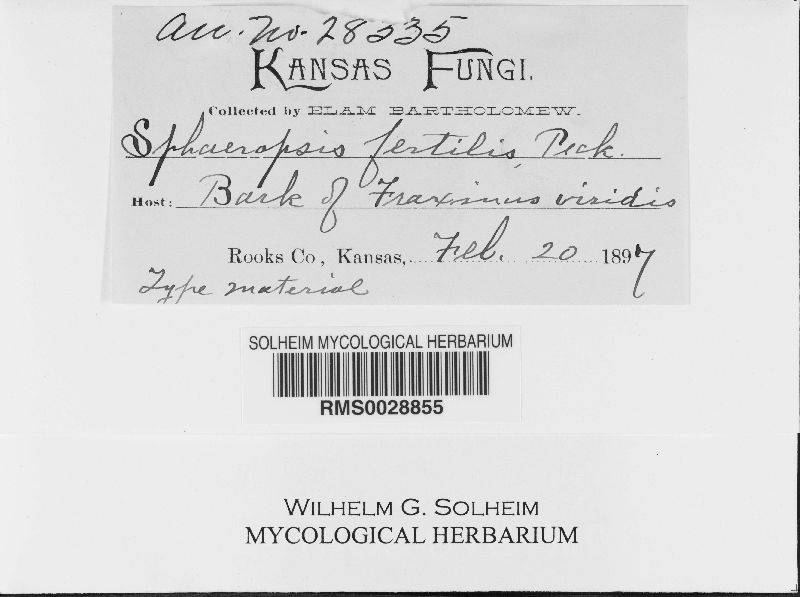 Acc. No. 28535
KANSAS FUNGI.
Collected by ELAM BARTHOLOMEW.
Sphaeropsis fertilis, Peck.
Host: Bark of Fraxinus viridis
Rooks Co, Kansas, Feb. 20 1897
Type material
SOLHEIM MYCOLOGICAL HERBARIUM
RMS0028855
WILHELM G. SOLHEIM
MYCOLOGICAL HERBARIUM